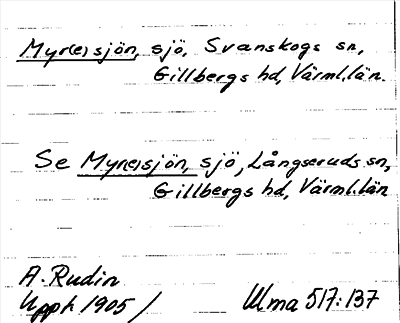 Myr(e)sjön, sjö, Svanskogs sn,
Gillbergs hd, Värml. län.
Se Myr(e)sjön, sjö, Långseruds sn,
Gillbergs hd, Värml. län
A. Rudin
Upph 1905 /
Ulma 517:137